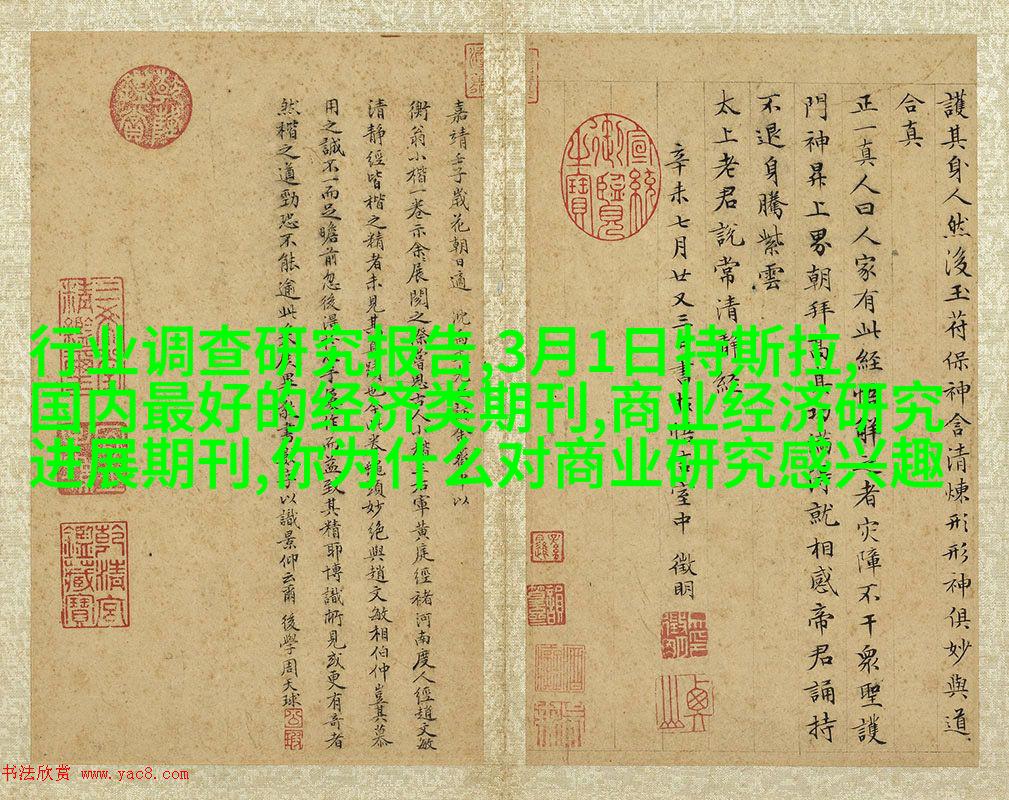 護其身人然後玉符保神含清煉形形神俱妙與道
合真
正一真人曰人家有此經悟解之者灾障不干眾聖護
門神昇上界朝拜高真
就相感帝君誦持
不退身騰紫雲
太上老君説常清靜經
辛未七月廿又三日書
室中 徵明
嘉靖壬子歲花朝日適
衡翁小楷一卷示余展閱之
古人小楷
右軍黃庭經褚河南度人經趙文敏
清靜經皆楷之精者未見其
妙絕與趙文敏相伯仲豈其慕
用之誠不一而足瞻前忽後
而益致其精耶博識所見或更有奇者
然楷之遒勁恐不能逾此
以識景仰云爾 後學周天球
宣統御覽之寶
乾清宮鑑藏寶
行业调查研究报告,3月1日特斯拉,
国内最好的经济类期刊,商业经济研究
进展期刊,你为什么对商业研究感兴趣
书法欣赏 www.yac8.com